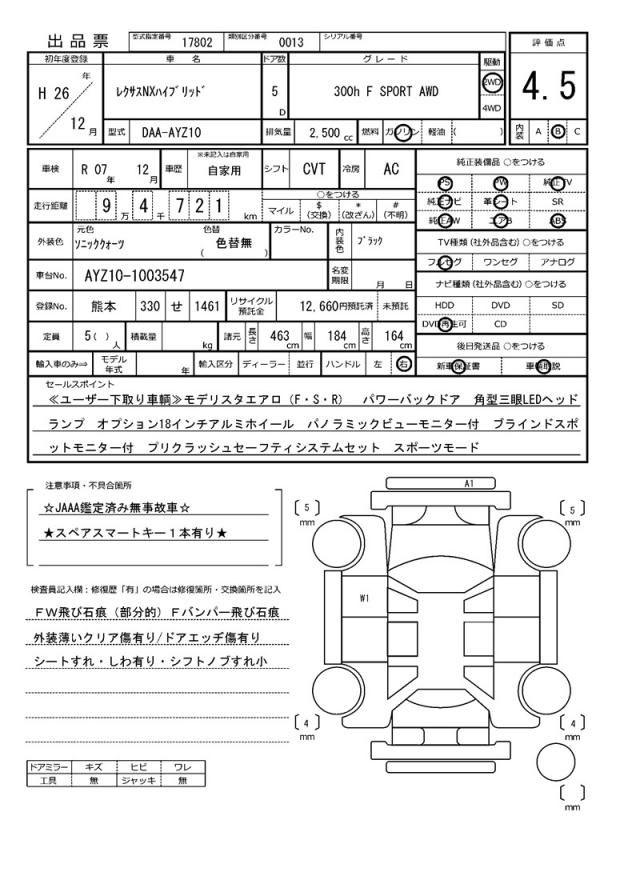 出品票
型式指定番号 17802 類別区分番号 0013 シリアル番号
初年度登録 車名 ドア数 グレード 駆動 評価点
H 26 年 12 月
ﾚｸｻｽNXﾊｲﾌﾞﾘｯﾄﾞ 5 D 300h F SPORT AWD 2WD 4WD
4.5
型式 DAA-AYZ10 排気量 2,500 cc 燃料 ガソリン 軽油 ( ) 内装 A B C
車検 R 07 年 12 月 車歴 ※未記入は自家用 自家用 シフト CVT 冷房 AC
純正装備品 ○をつける
PS PW 純正TV
純正ナビ 革シート SR
純正AW エアB ABS
走行距離 9 万 4 千 7 2 1 km
○をつける
マイル $ (交換) * (改ざん) # (不明)
TV種類 (社外品含む) ○をつける
フルセグ ワンセグ アナログ
外装色 元色 ｿﾆｯｸｸｫｰﾂ 色替 ( 色替無 ) カラーNo. 内装色 ﾌﾞﾗｯｸ
車台No. AYZ10-1003547 名変期限 月 日
ナビ種類 (社外品含む) ○をつける
HDD DVD SD
DVD再生可 CD
登録No. 熊本 330 せ 1461 リサイクル預託金 12,660円預託済 未預託
定員 5 ( ) 人 積載量 kg 諸元 長さ 463 cm 幅 184 cm 高さ 164 cm
後日発送品 ○をつける
新車保証書 車輌取説
輸入車のみ⇒ モデル年式 年 輸入区分 ディーラー 並行 ハンドル 左 右
セールスポイント
≪ユーザー下取り車輌≫モデリスタエアロ（F・S・R） パワーバックドア 角型三眼LEDヘッド
ランプ オプション18インチアルミホイール パノラミックビューモニター付 ブラインドスポ
ットモニター付 プリクラッシュセーフティシステムセット スポーツモード
注意事項・不具合箇所
☆JAAA鑑定済み無事故車☆
★スペアスマートキー１本有り★
検査員記入欄：修復歴「有」の場合は修復箇所・交換箇所を記入
ＦＷ飛び石痕（部分的）Ｆバンパー飛び石痕
外装薄いクリア傷有り/ドアエッヂ傷有り
シートすれ・しわ有り・シフトノブすれ小
A1
〔 5 〕 mm
〔 5 〕 mm
W1
〔 4 〕 mm
〔 4 〕 mm
〔 〕 mm
ドアミラー キズ ヒビ ワレ
工具 無 ジャッキ 無